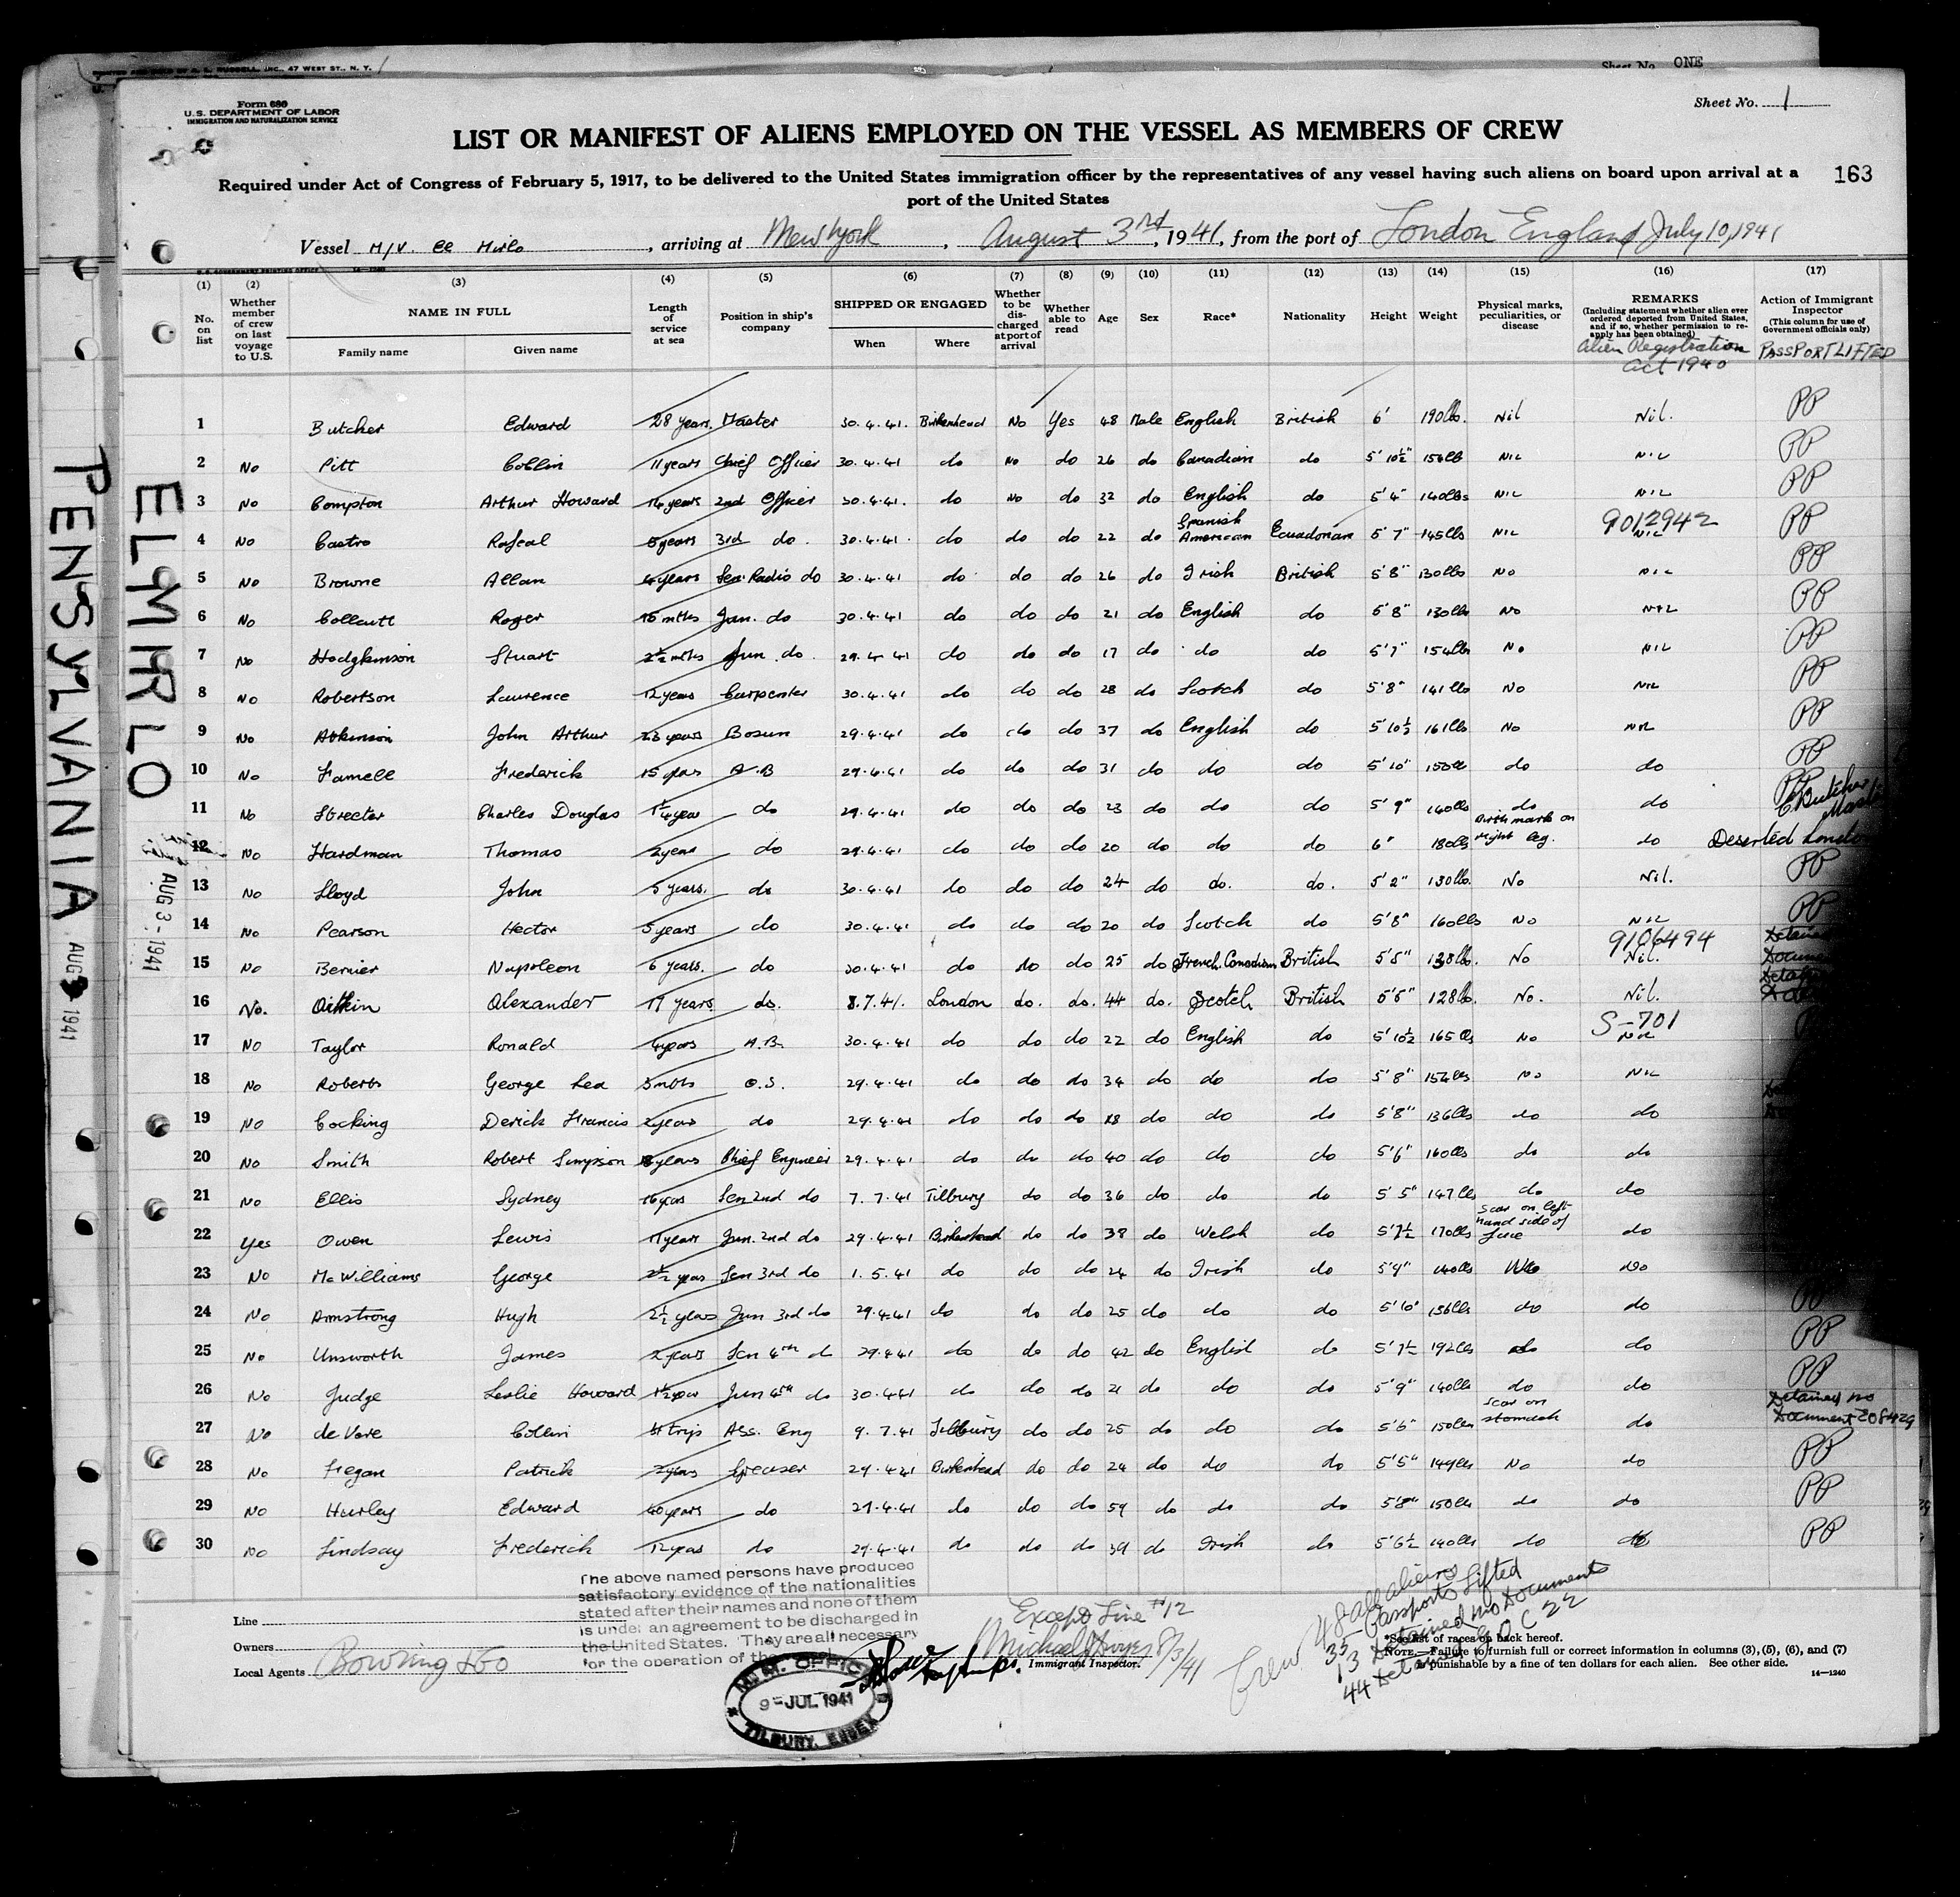 PRINTED AND SOLD BY A. L. RUSSELL, INC., 47 WEST ST., N. Y.
Sheet No. ONE
Form 680
U.S. DEPARTMENT OF LABOR
IMMIGRATION AND NATURALIZATION SERVICE
Sheet No. 1
LIST OR MANIFEST OF ALIENS EMPLOYED ON THE VESSEL AS MEMBERS OF CREW
Required under Act of Congress of February 5, 1917, to be delivered to the United States immigration officer by the representatives of any vessel having such aliens on board upon arrival at a
port of the United States
163
Vessel M/V. El Mirlo, arriving at New York, August 3rd, 1941, from the port of London England July 10, 1941
U.S. GOVERNMENT PRINTING OFFICE 14-1240
(1) (2) (3) (4) (5) (6) (7) (8) (9) (10) (11) (12) (13) (14) (15) (16) (17)
No. on list
Whether member of crew on last voyage to U.S.
NAME IN FULL
Family name
Given name
Length of service at sea
Position in ship's company
SHIPPED OR ENGAGED
When
Where
Whether to be discharged at port of arrival
Whether able to read
Age
Sex
Race*
Nationality
Height
Weight
Physical marks, peculiarities, or disease
REMARKS
(Including statement whether alien ever ordered deported from United States, and if so, whether permission to reapply has been obtained)
Alien Registration
Act 1940
Action of Immigrant Inspector
(This column for use of Government officials only)
PASSPORT LIFTED
1 Butcher Edward 28 years Master 30.4.41. Birkenhead No Yes 48 Male English British 6' 190lb. Nil Nil. PP
2 No Pitt Collin 11 years Chief Officer 30.4.41 do No do 26 do Canadian do 5' 10½" 156lb NIL NIL PP
3 No Compton Arthur Howard 14 years 2nd Officer 30.4.41. do No do 32 do English do 5' 4" 140lbs NIL NIL PP
4 No Castro Rafeal 5 years 3rd do. 30.4.41. do do do 22 do Spanish American Ecuadorian 5' 7" 145lbs NIL 9012942 NIL PP
5 No Browne Allan 4 years Sen Radio do 30.4.41 do do do 26 do Irish British 5' 8" 130lbs No NIL PP
6 No Collcutt Roger 15 mths Jun. do 30.4.41 do do do 21 do English do 5' 8" 130lbs No NIL PP
7 No Hodgkinson Stuart 2½ mths Jun. do. 29.4.41 do do do 17 do do do 5' 7" 154lbs No NIL PP
8 No Robertson Laurence 12 years Carpenter 30.4.41 do do do 28 do Scotch do 5'8" 141lbs No NIL PP
9 No Atkinson John Arthur 23 years Bosun 29.4.41 do do do 37 do English do 5' 10½ 161lbs No NIL PP
10 No Farnell Frederick 15 years A.B 29.4.41 do do do 31 do do do 5' 10" 150lb do do PP
11 No Streeter Charles Douglas 1¼ year do 29.4.41 do do do 23 do do do 5' 9" 140lbs do do PP
E Butcher
Master
12 No Hardman Thomas 2 year do 29.4.41 do do do 20 do do do 6" 180lbs Birth mark on right leg. do Deserted London
13 No Lloyd John 5 years. do 30.4.41 do do do 24 do do. do. 5' 2" 130lbs. No Nil. PP
14 No Pearson Hector 5 years do 30.4.41 do do do 20 do Scotch do 5'8" 160lbs No NIL PP
15 No Bernier Napoleon 6 years. do 30.4.41 do do do 25 do French.Canadian British 5'5" 138lb. No 9106494 Nil.
16 No. Aitkin Alexander 19 years do. 8.7.41. London do. do. 44 do. Scotch British 5'5" 128lb. No. Nil.
17 No Taylor Ronald 4 years A.B. 30.4.41 do do do 22 do English do 5' 10½ 165lbs No S-701 NIL
18 No Roberts George Lea 5 mths O.S. 29.4.41 do do do 34 do do do 5'8" 154lbs No NIL
19 No Cocking Derick Francis 2 year do 29.4.41 do do do 18 do do do 5'8" 136lbs do do
20 No Smith Robert Simpson 18 years Chief Engineer 29.4.41 do do do 40 do do do 5'6" 160lbs do do
21 No Ellis Sydney 16 years Sen 2nd do 7.7.41 Tilbury do do 36 do do do 5' 5" 147lbs do do
22 Yes Owen Lewis 17 years Jun. 2nd do 29.4.41 Birkenhead do do 38 do Welsh do 5'7½ 170lbs scar on left-hand side of face do
23 No McWilliams George 2½ years Sen 3rd do 1.5.41 do do do 24 do Irish do 5'9" 140lbs No do
24 No Armstrong Hugh 2½ years Jun 3rd do 29.4.41 do do do 25 do do do 5'10" 156lbs do do PP
25 No Unsworth James 2 years Sen 4th d 29.4.41 do do do 42 do English do 5' 7½ 192lbs do do PP
26 No Judge Leslie Howard 1½ year Jun 4th do 30.4.41 do do do 21 do do do 5'9" 140lbs do do PP
27 No de Vere Collin 4 trips Ass. Eng 9.7.41 Tilbury do do 25 do do do 5'6" 150lbs scar on stomach do Detained no Document 208429
28 No Fegan Patrick 2 years Greaser 29.4.41 Birkenhead do do 24 do do do 5'5" 149lbs No do PP
29 No Hurley Edward 40 years do 29.4.41 do do do 59 do do do 5'8" 150lbs do do PP
30 No Lindsay Frederick 12 years do 29.4.41 do do do 39 do Irish do 5'6½ 140lbs do do PP
The above named persons have produced
satisfactory evidence of the nationalities
stated after their names and none of them
is under an agreement to be discharged in
the United States. They are all necessary
for the operation of the
Line
Owners
Local Agents Bowring & Co
Except Line #12
Immigrant Inspector.
8/3/41
Crew 48 all aliens
35 Passports Lifted
13 Detained no Documents
44 Detained
*See list of races on back hereof.
NOTE.—Failure to furnish full or correct information in columns (3), (5), (6), and (7)
is punishable by a fine of ten dollars for each alien. See other side.
14—1240
M.M. OFFICE
9 - JUL 1941
TILBURY, ESSEX
EL MIRLO
AUG 3 - 1941
PENSYLVANIA
AUG 3 1941